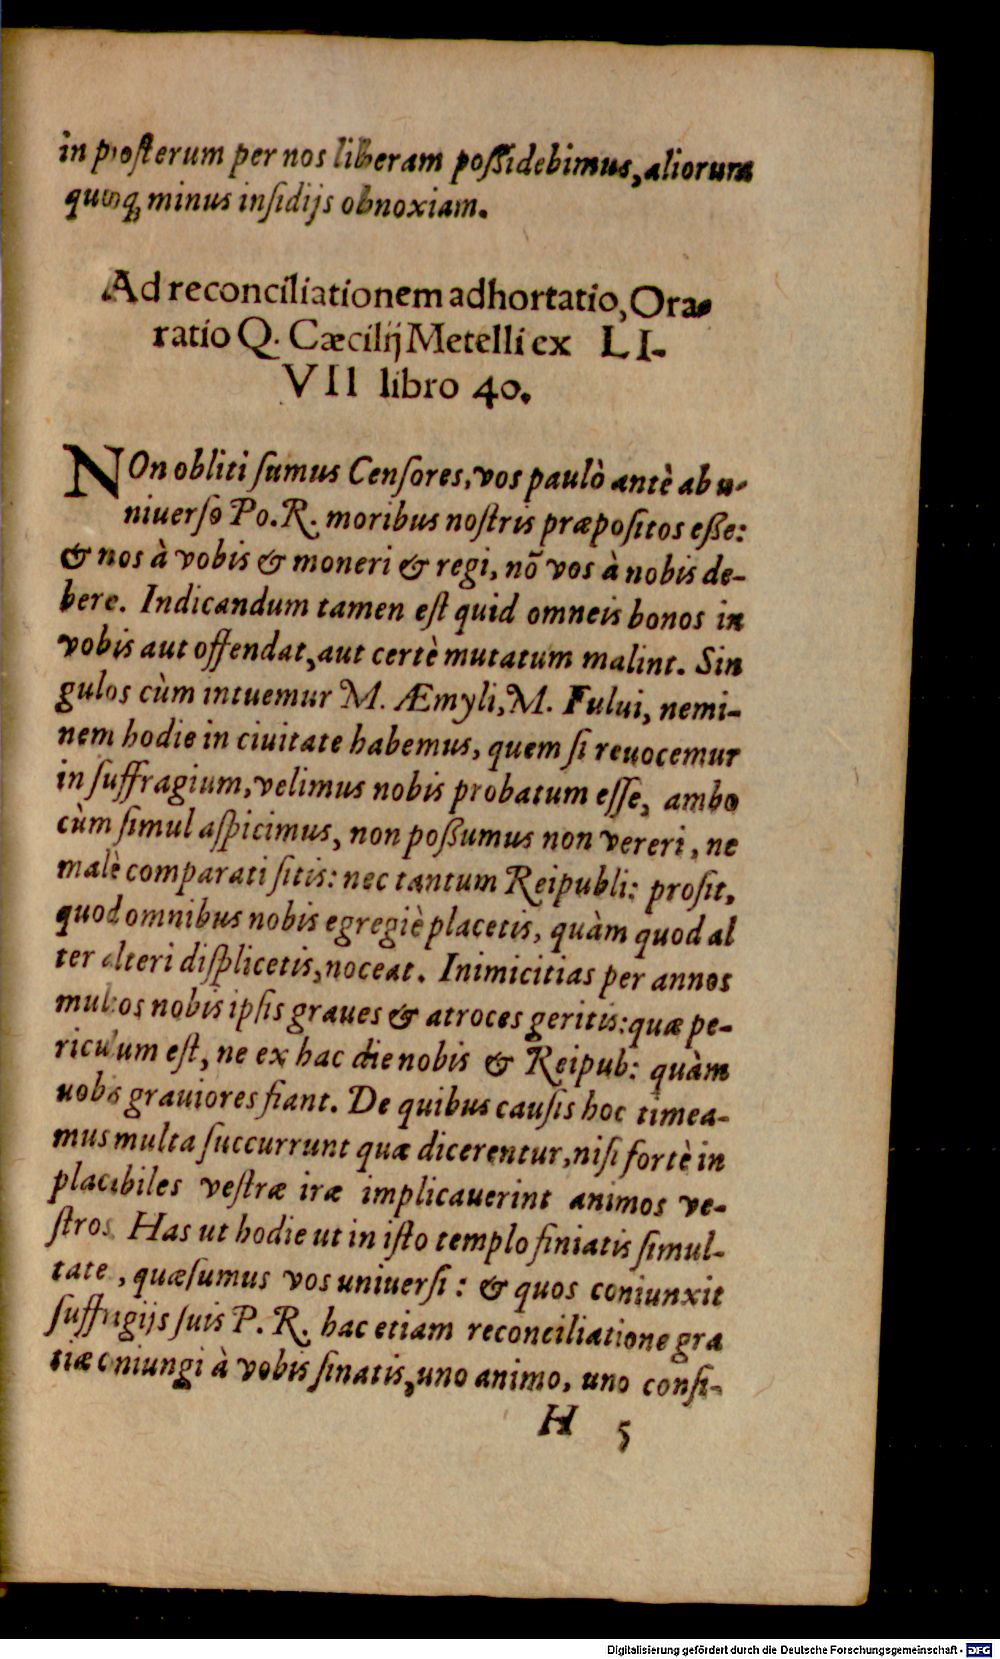 in posterum per nos liberam possidebimus, aliorum
quoq; minus insidijs obnoxiam.
Ad reconciliationem adhortatio, Ora-
ratio Q. Cæcilij Metelli ex LI-
VII libro 40.
NOn obliti sumus Censores, vos paulò antè ab u-
niuerso Po. R. moribus nostris præpositos esse:
& nos à vobis & moneri & regi, nõ vos à nobis de-
bere. Indicandum tamen est quid omneis bonos in
vobis aut offendat, aut certè mutatum malint. Sin
gulos cùm intuemur M. Æmyli, M. Fului, nemi-
nem hodie in ciuitate habemus, quem si reuocemur
in suffragium, velimus nobis probatum esse, ambo
cùm simul aspicimus, non possumus non vereri, ne
malè comparati sitis: nec tantum Reipubli: prosit,
quod omnibus nobis egregiè placetis, quàm quod al
ter alteri displicetis, noceat. Inimicitias per annos
multos nobis ipsis graues & atroces geritis: quæ pe-
riculum est, ne ex hac die nobis & Reipub: quàm
uobis grauiores fiant. De quibus causis hoc timea-
mus multa succurrunt quæ dicerentur, nisi fortè in
placabiles vestræ iræ implicauerint animos ve-
stros. Has ut hodie ut in isto templo finiatis simul-
tates, quæsumus vos uniuersi: & quos coniunxit
suffragijs suis P. R. hac etiam reconciliatione gra
tiæ coniungi à vobis sinatis, uno animo, uno consi-
H 5
Digitalisierung gefördert durch die Deutsche Forschungsgemeinschaft - DFG